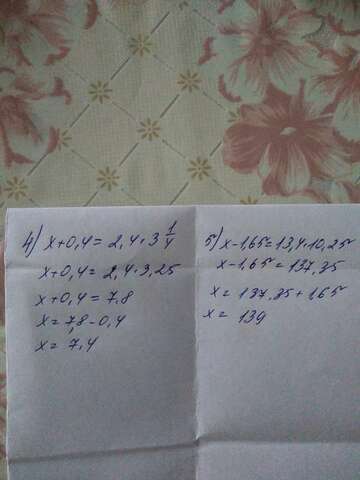 4) x+0,4=2,4·3 1/4
x+0,4=2,4·3,25
x+0,4=7,8
x=7,8-0,4
x=7,4
5) x-1,65=13,4·10,25
x-1,65=137,35
x=137,35+1,65
x=139